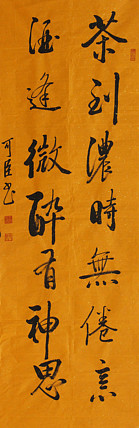 茶到濃時無倦意
酒逢微醉有神思
可臣书